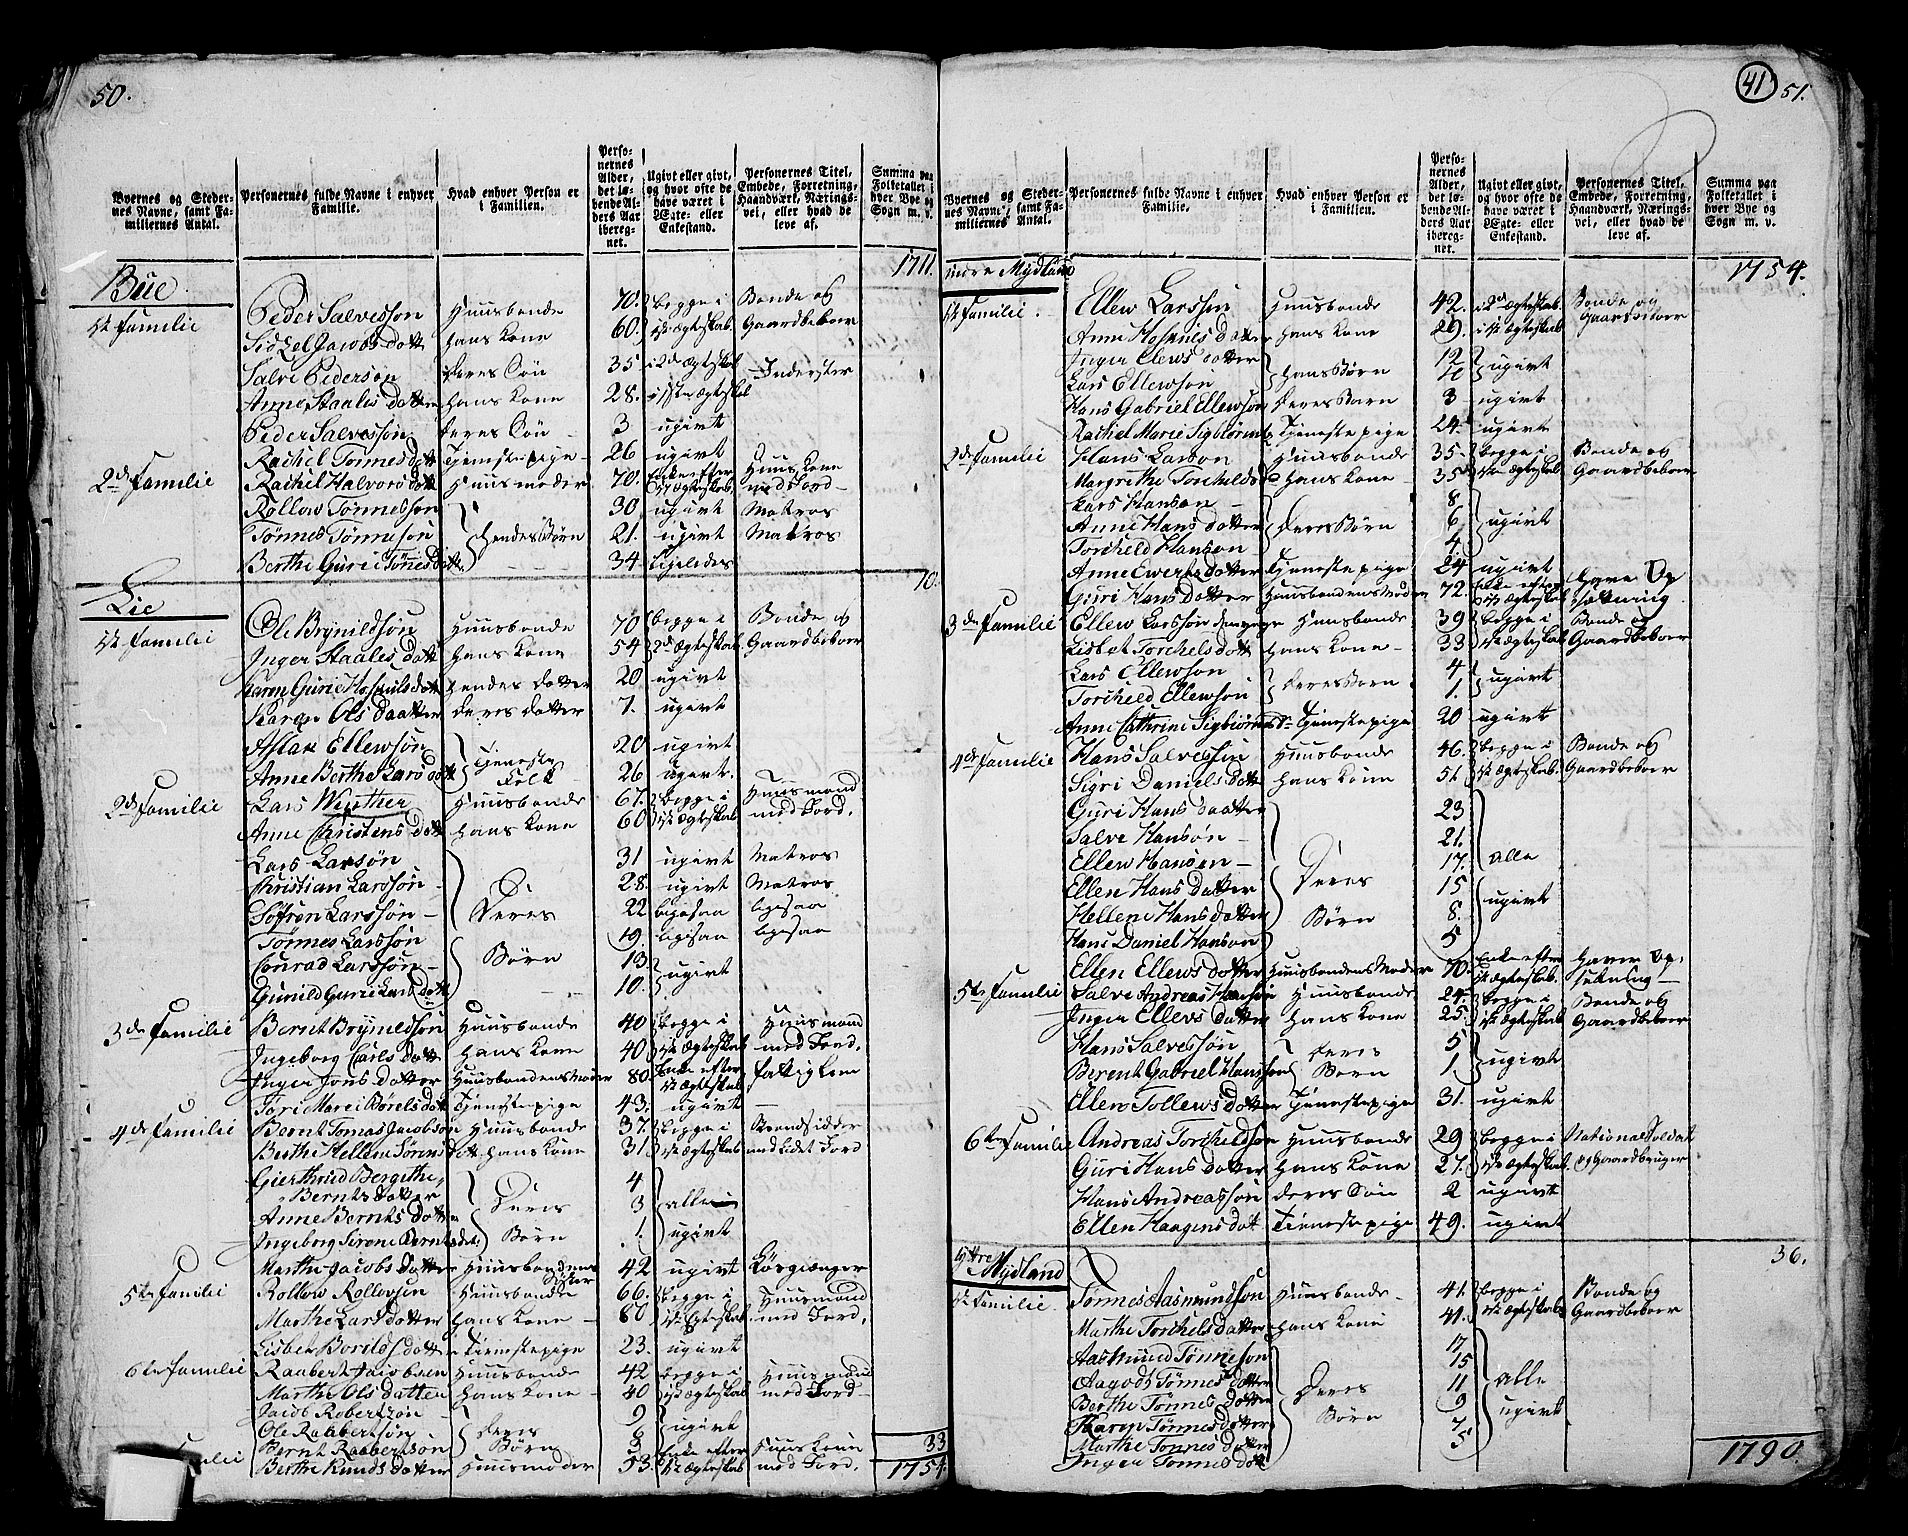 50.
Byernes og Stedernes Navne, samt Familiernes Antal.
Personernes fulde Navne i enhver Familie.
Hvad enhver Person er i Familien.
Personernes Alder, det løbende Alders Aar iberegnet.
Ugivt eller givt, og hvor ofte de have været i Ægte- eller Enkestand.
Personernes Titel, Embede, Forretning, Haandværk, Næringsvei, eller hvad de leve af.
Summa paa Folketallet i hver Bye og Sogn m. v.
1711.
Büe.
1ste Familie Peder Salvesson Huusbonde 70. begge i Bonde og
Sidzel Jacobsdotter hans Kone 60. 1ste Ægteskab. Gaardbeboer
Salve Pedersøn deres Søn 35 i 2det Ægteskab Inderster
Anne Staalesdotter hans Kone 28. i første Ægteskab
Peder Salvessøn deres Søn 3 ugivt
Rachel Tønnesdotter Tjenestepige 26 ugivt
2den Familie Rachel Halvorsdotter Huusmoder 70. Enke efter 1ste Ægteskab Huuskone med Jord
Rollow Tønnesson 30 ugivt Matros
Tønnes Tønneson hendes Børn 21. ugivt Matros
Berthe Gurie Tønnesdotter 34 ligeledes
10.
Lie
1ste Familie Ole Brynildsøn Huusbonde 70 begge i Bonde og
Inger Staalesdotter hans Kone 54 2det Ægteskab Gaardbeboer
Karen Gurie hendes dotter 20 ugivt
Karen Olsdaatter deres dotter 7. ugivt
Aslak Ellewsøn Tjeneste 20 ugivt
Anne Berthe Larsdotter Folk 26 ugivt.
2den Familie Lars Huusbonde 67. begge i Huusmand
Anne Christensdotter hans Kone 60 1ste Ægteskab med Jord.
Lars Larsøn 31 ugivt Matros
Christian Larssøn 28. ugivt Matros
Søfren Larssøn Deres 22 ligesaa ligesaa
Tønnes Larssøn 19. ligesaa ligesaa
Conrad Larssøn Børn 13 ugivt
Gunild Gurie Larsdotter 10.
3de Familie Bernt Brynildsøn Huusbonde 40 begge i Huusmand
Ingeborg Carlsdotter hans Kone 40 1ste Ægteskab med Jord.
Inger Jonsdotter Huusbondens Moder 80. Enke efter 1ste Ægteskab fattiglem
Tjenestepige 43. ugivt
4de Familie Bernt Tomas Jacobsøn Huusbonde 37. begge i Strandsidder
Berthe Hellene Sørensdotter hans Kone 31 1ste Ægteskab med lidet Jord
Gierthrud Bergithe Berntsdotter Deres 4
Anne Berntsdotter 3 alle
Ingeborg Sirene Berntsdot. Børn 1. ugivt
Marthe Jacobsdotter Huusbondens Søster 42 ugivt
5te Familie Rollow Rollowsen Huusbonde 66. begge i Huusmand
Marthe Larsdotter hans Kone 60 1ste Ægteskab med Jord.
Lisbet Tienestepige 23. ugivt
6te Familie Raabert Jacobsen Huusbonde 42 begge i Huusmand
Marthe Olsdatter hans Kone 40 1ste Ægteskab med Jord
Jacob Robertsøn 9
Ole Raabertsøn Deres 6 ugivt
Bernt Raabertsøn Børn 3
Berthe Knudsdotter Huusmoder 53. Enke efter 1ste Ægteskab Huuskone med Jord.
33
1754.
41
51.
Byernes og Stedernes Navne, samt Familiernes Antal.
Personernes fulde Navne i enhver Familie.
Hvad enhver Person er i Familien.
Personernes Alder, det løbende Alders Aar iberegnet.
Ugivt eller givt, og hvor ofte de have været i Ægte- eller Enkestand.
Personernes Titel, Embede, Forretning, Haandværk, Næringsvei, eller hvad de leve af.
Summa paa Folketallet i hver Bye og Sogn m. v.
1754.
indre Mydland
1ste Familie. Ellew Larssøn Huusbonde 42. i 2det Ægteskab Bonde og Gaardbeboer
Anne dotter hans Kone 29. i 1ste Ægteskab
Inger Ellews dotter 12
Lars Ellewsøn hans Børn ugivt
Hans Gabriel Ellewsøn deres Barn 3 ugivt
Rachel Marie Tjenestepige 24. ugivt
2den Familie Hans Larson Huusbonde 35. begge i Bonde og
Margrethe Torchelds hans Kone 35 1ste Ægteskab Gaardbeboer
Lars Hanson 8
Anne Hansdotter deres Børn 6 ugivt
Torcheld Hanson 4
Anne Ewertsdotter Tjenestepige 24 ugivt
Guri Hansdotter Huusbondens Moder 72. Enke efter 1ste Ægteskab
3de Familie Ellew Larssøn Huusbonde 39 begge i Bonde og
Lisbet Torchelsdotter hans Kone 33 1ste Ægteskab Gaardbeboer
Lars Ellewsøn 4
Torcheld Ellewsøn deres Børn 1. ugivt
Anne Cathrine Tjenestepige 20 ugivt
4de Familie Hans Salvessøn Huusbonde 46. begge i Bonde og
Sigri Danielsdotter hans Kone 51. 1ste Ægteskab. Gaardbeboer
Guri Hansdaatter 23
Salve Hansøn 21.
Ellew Hansen 17. alle
Ellen Hansdotter Deres 15
Hellene Hansdotter Børn 8. ugivt
Hans Daniel Hanson 5
Ellen Ellewsdotter Huusbondens Moder 70. Enke efter 1ste Ægteskab.
5te Familie Salve Andreas Hansøn Huusbonde 24. begge i Bonde og
Inger Ellevsdotter hans Kone 25. 1ste Ægteskab Gaardbeboer
Hans Salvessøn deres 5
Berent Gabriel Hanssøn Børn 1 ugivt
Ellen Tollewsdotter Tjenestepige 31. ugivt
6te Familie Andreas Torcheldsøn Huusbonde 29 begge i National Soldat
Guri Hansdotter hans Kone 27. 1ste Ægteskab. og Gaardbruger
Hans Andreassøn deres Søn 2 ugivt
Ellen Haagensdot. Tienestepige 49. ugivt
36.
ÿttre Mydland
1ste Familie. Tønnes Aasmundsøn Huusbonde 41. begge i Bonde og
Marthe Torchelsdotter hans Kone 41. 1ste Ægteskab Gaardbeboer
Aasmund Tønneson 17
Aagodt Tønnesdotter Deres 15
Berthe Tønnesdotter Børn 11 alle
Karen Tønnesdotter 9 ugivt
Marthe Tønnesdotter 7
Inger Tønnesdot 5
1790.